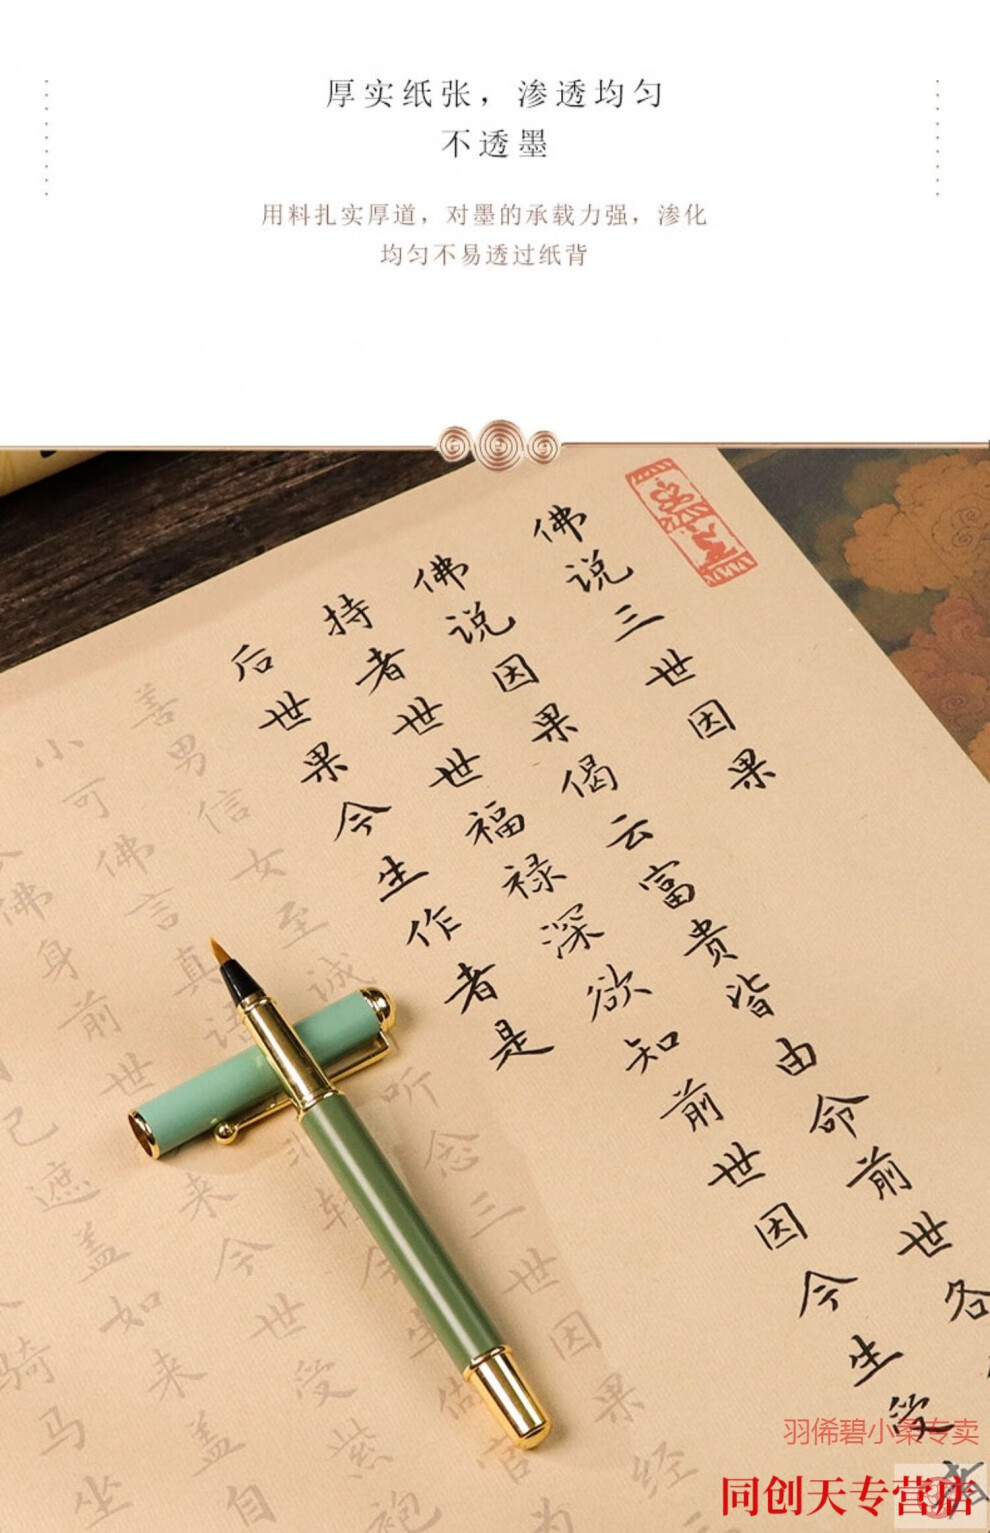 厚实纸张，渗透均匀
不透墨
用料扎实厚道，对墨的承载力强，渗化
均匀不易透过纸背
佛说三世因果
佛说因果偈云富贵皆由命前世各
持者世世福禄深欲知前世因今生受
后世果今生作者是
善男信女至诚听念三世因果经
小可佛言真语非轻今生做官为
佛身前世来今世受紫袍
己遮盖如来盖自
骑马坐
羽俙碧小柔专卖
同创天专营店